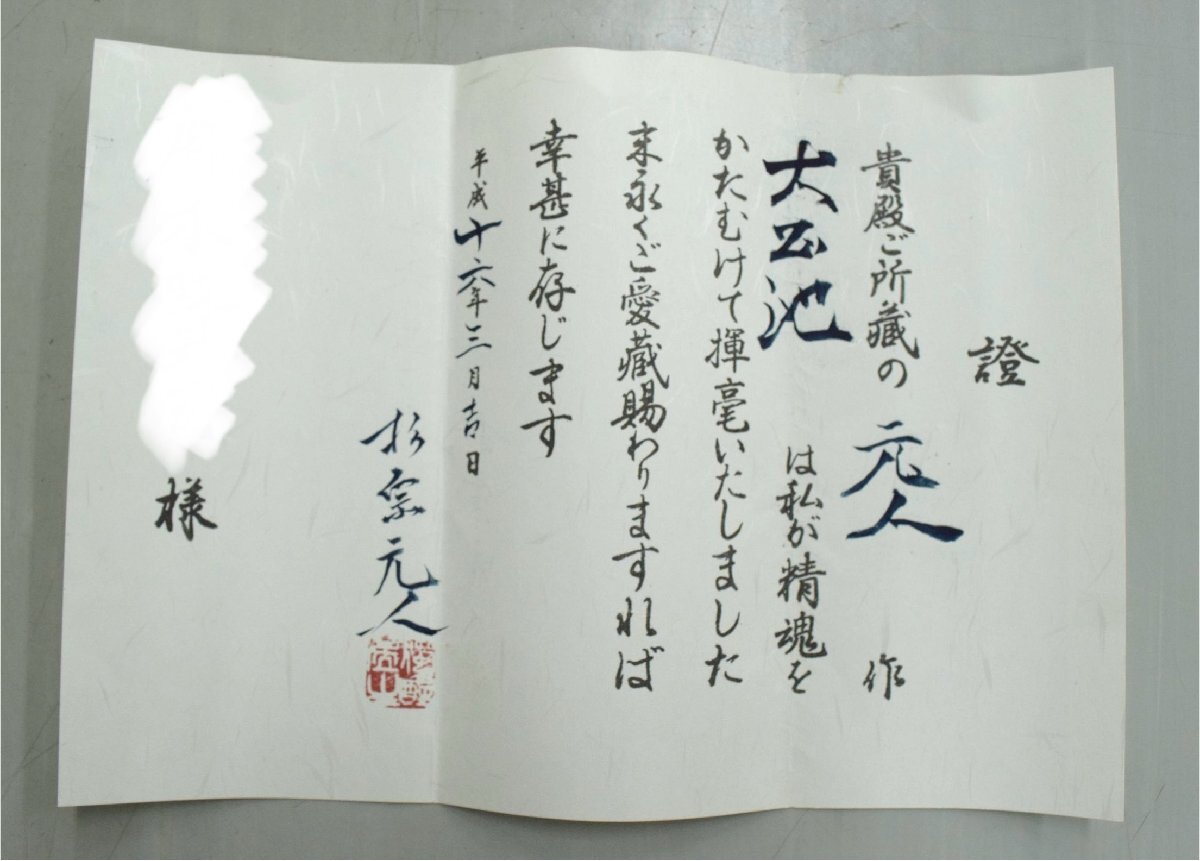 證
貴殿ご所藏の 元人 作
太公池 は私が精魂を
かたむけて揮毫いたしました
末永くご愛蔵賜わりますれば
幸甚に存じます
平成十六年三月吉日
杉宗元人
様